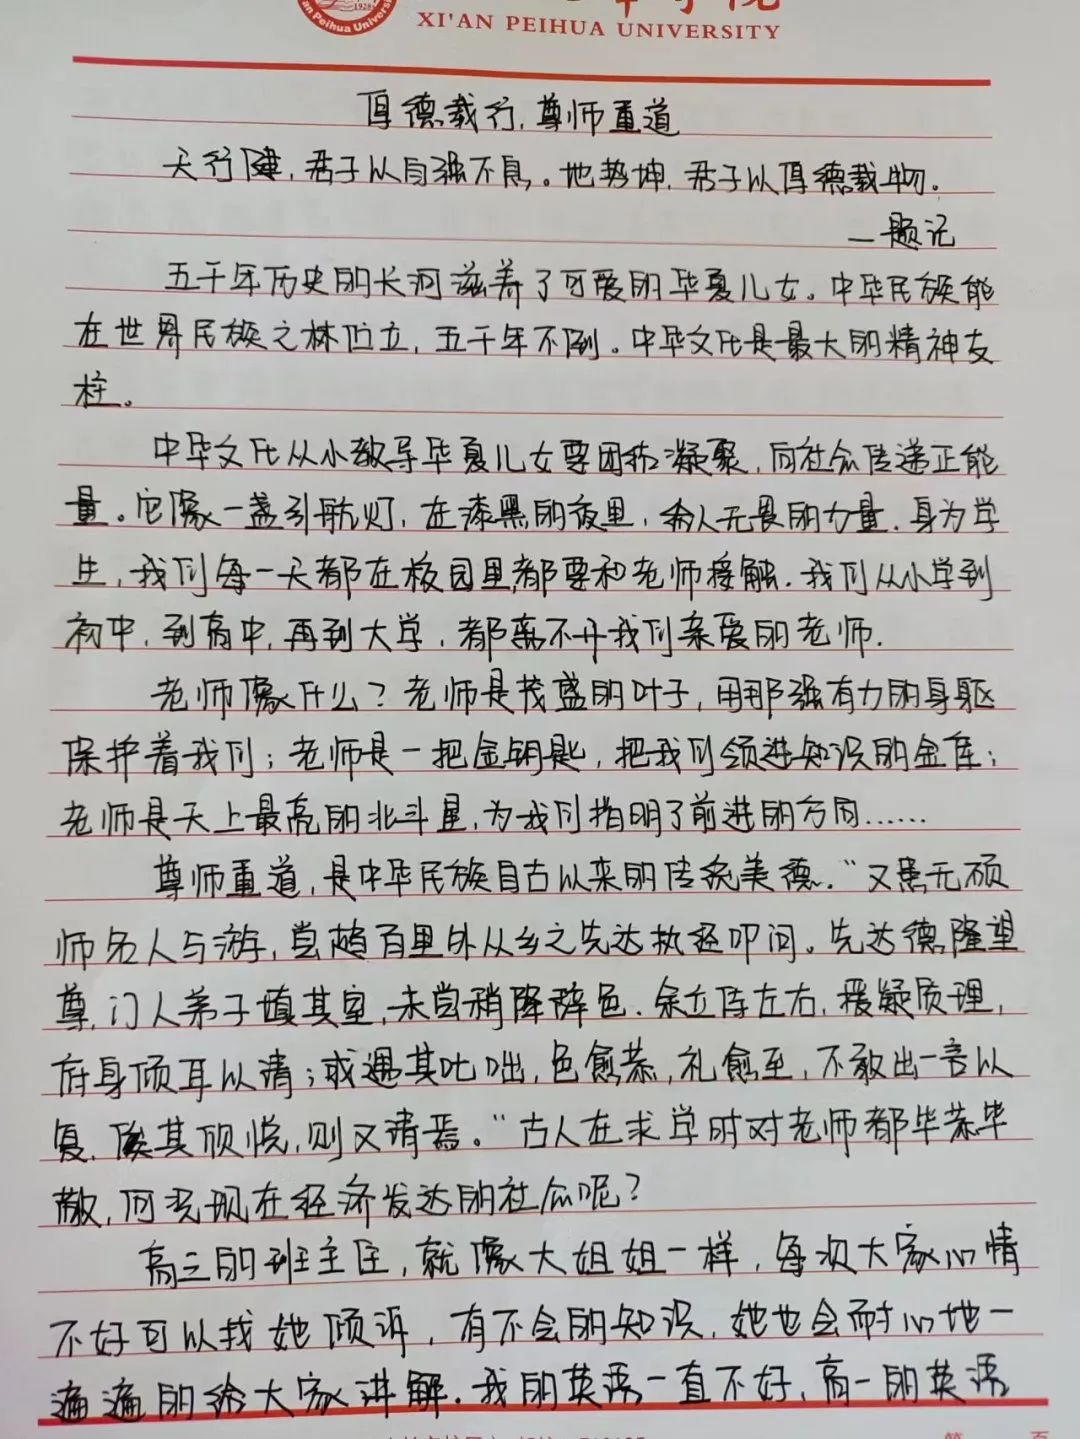 XI'AN PEIHUA UNIVERSITY
Peihua University
1928
厚德载行,尊师重道
天行健,君子以自强不息。地势坤,君子以厚德载物。
—题记
五千年历史的长河滋养了可爱的华夏儿女。中华民族能
在世界民族之林位立,五千年不倒。中华文化是最大的精神支
柱。
中华文化从小教导华夏儿女要团结凝聚,向社会传递正能
量。它像一盏引航灯,在漆黑的夜里,给人无畏的力量.身为学
生,我们每一天都在校园里都要和老师接触.我们从小学到
初中,到高中,再到大学,都离不开我们亲爱的老师.
老师像什么?老师是茂盛的叶子,用那强有力的身躯
保护着我们;老师是一把金钥匙,把我们领进知识的金库;
老师是天上最亮的北斗星,为我们指明了前进的方向......
尊师重道,是中华民族自古以来的传统美德."又患无硕
师名人与游,尝趋百里外从乡之先达执经叩问。先达德隆望
尊,门人弟子填其室,未尝稍降辞色.余立侍左右,援疑质理,
府身倾耳以请;或遇其叱咄,色愈恭,礼愈至,不敢出一言以
复,俟其欣悦,则又请焉。"古人在求学时对老师都毕恭毕
敬,何况现在经济发达的社会呢?
高三的班主任,就像大姐姐一样,每次大家心情
不好可以找她倾诉,有不会的知识,她也会耐心地一
遍遍的给大家讲解.我的英语一直不好,高一的英语